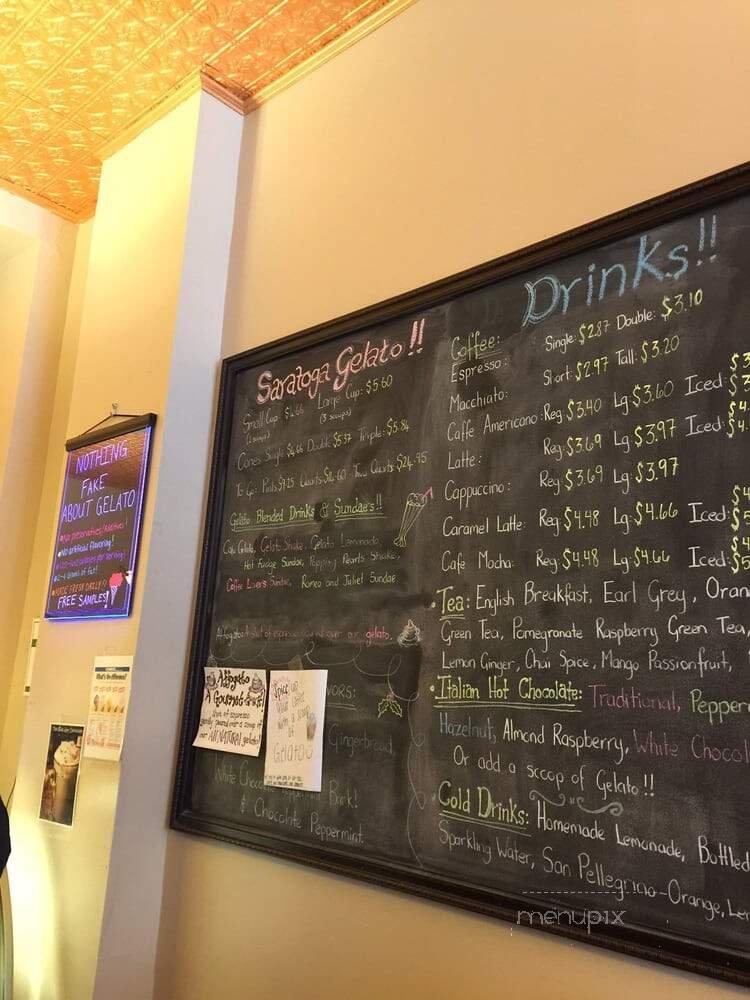 NOTHING
FAKE
ABOUT GELATO!
FREE SAMPLES!
What's the difference?
Saratoga Gelato!!
Small Cup $4.66 Large Cup: $5.60
(3 scoops)
Cones Single $4.66 Double $5.37 Triple: $5.84
To Go: Pints $9.25 Quarts Two Quarts $24.75
Gelato Blended Drinks & Sundae's!!
Gelato Shake, Gelato Lemonade,
Hot Fudge Sundae, Pearls Shake,
Coffee Lovers Sundae, Romeo and Juliet Sundae
Affogato: A shot of espresso over our gelato.
Affogato
A Gourmet
Shot of espresso
gently poured over a scoop of
our All NATURAL gelato!
Spice up
your
with a scoop
of
Gelato
VORS:
Gingerbread,
White Chocolate Peppermint Bark!
& Chocolate Peppermint
Drinks!!
Coffee:
Espresso: Single: $2.87 Double: $3.10
Macchiato: Short: $2.97 Tall: $3.20
Caffe Americano: Reg: $3.40 Lg: $3.60 Iced: $3
Latte: Reg: $3.69 Lg: $3.97 Iced: $4.
Cappuccino: Reg: $3.69 Lg: $3.97
Caramel Latte: Reg: $4.48 Lg: $4.66 Iced: $4
Cafe Mocha: Reg: $4.48 Lg: $4.66 Iced: $4
Tea: English Breakfast, Earl Grey, Oran
Green Tea, Pomegranate Raspberry Green Tea,
Lemon Ginger, Chai Spice, Mango Passionfruit,
Italian Hot Chocolate: Traditional, Pepper
Hazelnut, Almond Raspberry, White Chocol
Or add a scoop of Gelato!!
Cold Drinks: Homemade Lemonade, Bottled
Sparkling Water, San Pellegrino-Orange, Le
menupix